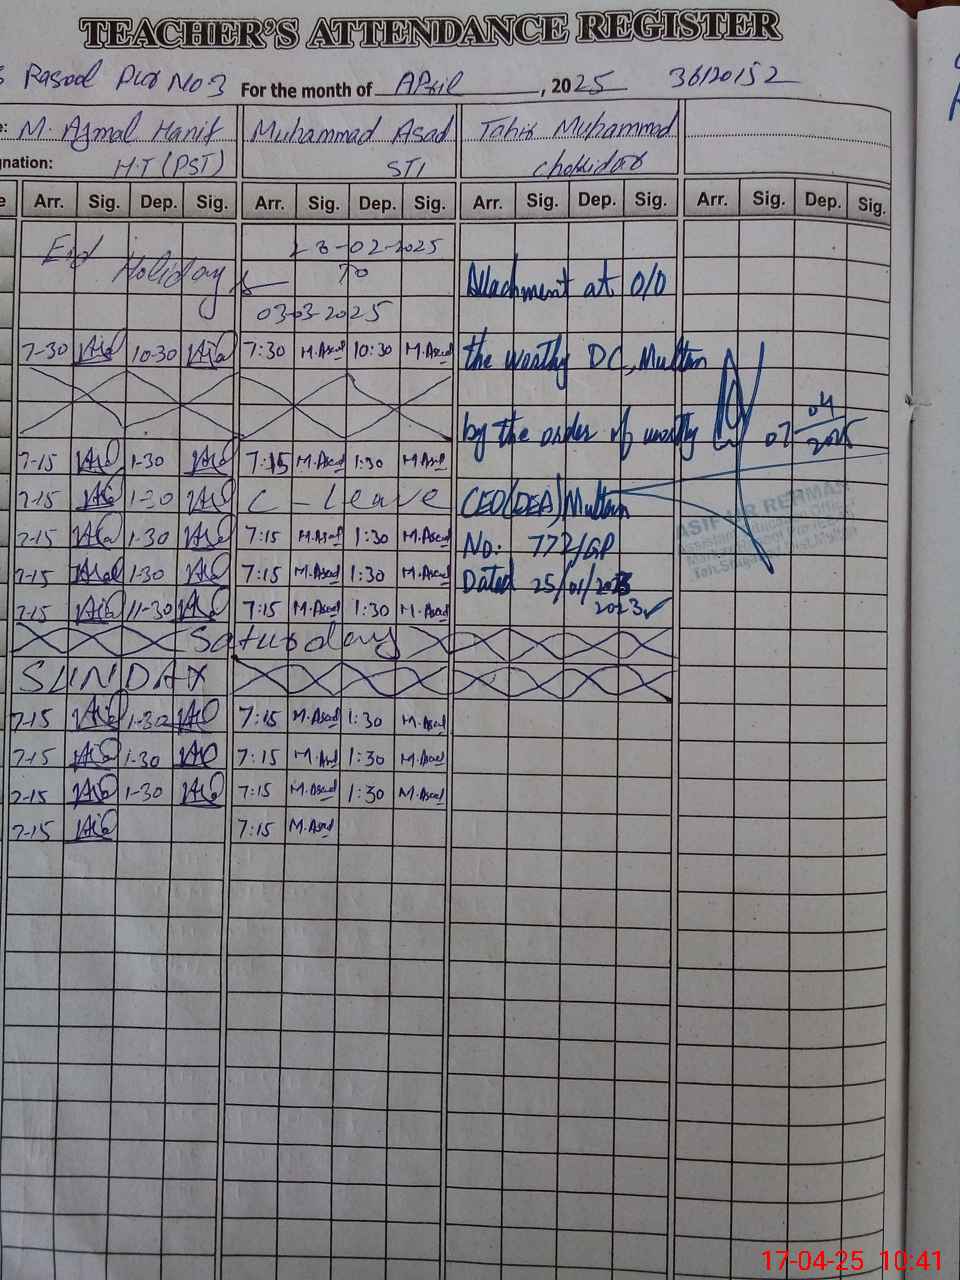 TEACHER'S ATTENDANCE REGISTER
Rasool Pur No 3 For the month of April, 2025 36120152
M. Ajmal Hanif Muhammad Asad Tahir Muhammad
nation: H.T (PST) STI Chokidar
Arr. Sig. Dep. Sig. Arr. Sig. Dep. Sig. Arr. Sig. Dep. Sig. Arr. Sig. Dep. Sig.
Eid Holidays 28-02-2025
To
03-03-2025
Attachment at O/O
7-30 10-30 7:30 M.Asad 10:30 M.Asad the worthy DC, Multan
by the order of worthy 07 04 2025
7-15 1-30 7:15 M.Asad 1:30 M.Asad
7-15 1-30 C - Leave CEO(DEA) Multan
ASIF UR REHMAN
7-15 1-30 7:15 M.Asad 1:30 M.Asad No: 772/GP
7-15 1-30 7:15 M.Asad 1:30 M.Asad Dated 25/01/2023
7-15 11-30 7:15 M.Asad 1:30 M.Asad 2023
Saturday
SUNDAY
7-15 1-30 7:15 M.Asad 1:30 M.Asad
7-15 1-30 7:15 M.Asad 1:30 M.Asad
7-15 1-30 7:15 M.Asad 1:30 M.Asad
7-15 7:15 M.Asad
17-04-25 10:41